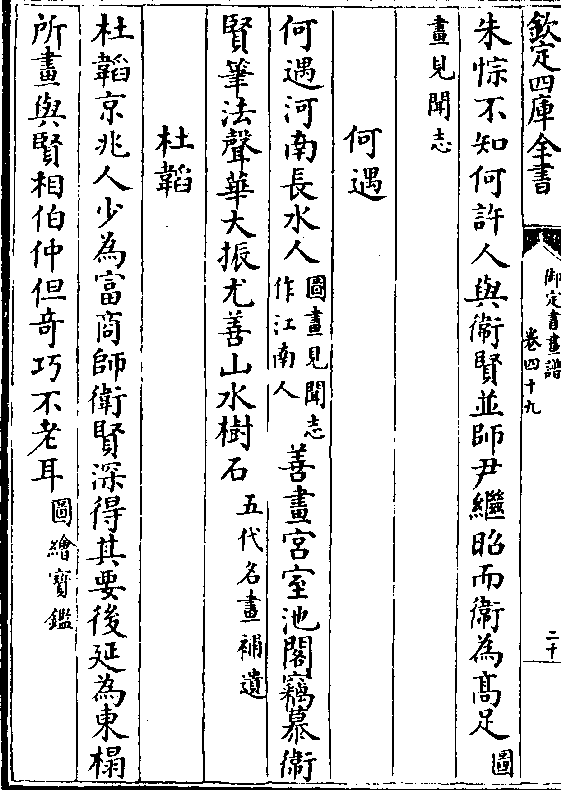 欽定四庫全書
御定書畫譜
卷四十九
二十
朱悰不知何許人與衛賢並師尹繼昭而衛為高足圖
畫見聞志
何遇
何遇河南長水人圖畫見聞志作江南人善畫宮室池閣竊慕衛
賢筆法聲華大振尤善山水樹石五代名畫補遺
杜韜
杜韜京兆人少為富商師衛賢深得其要後延為東榻
所畫與賢相伯仲但奇巧不老耳圖繪寶鑑